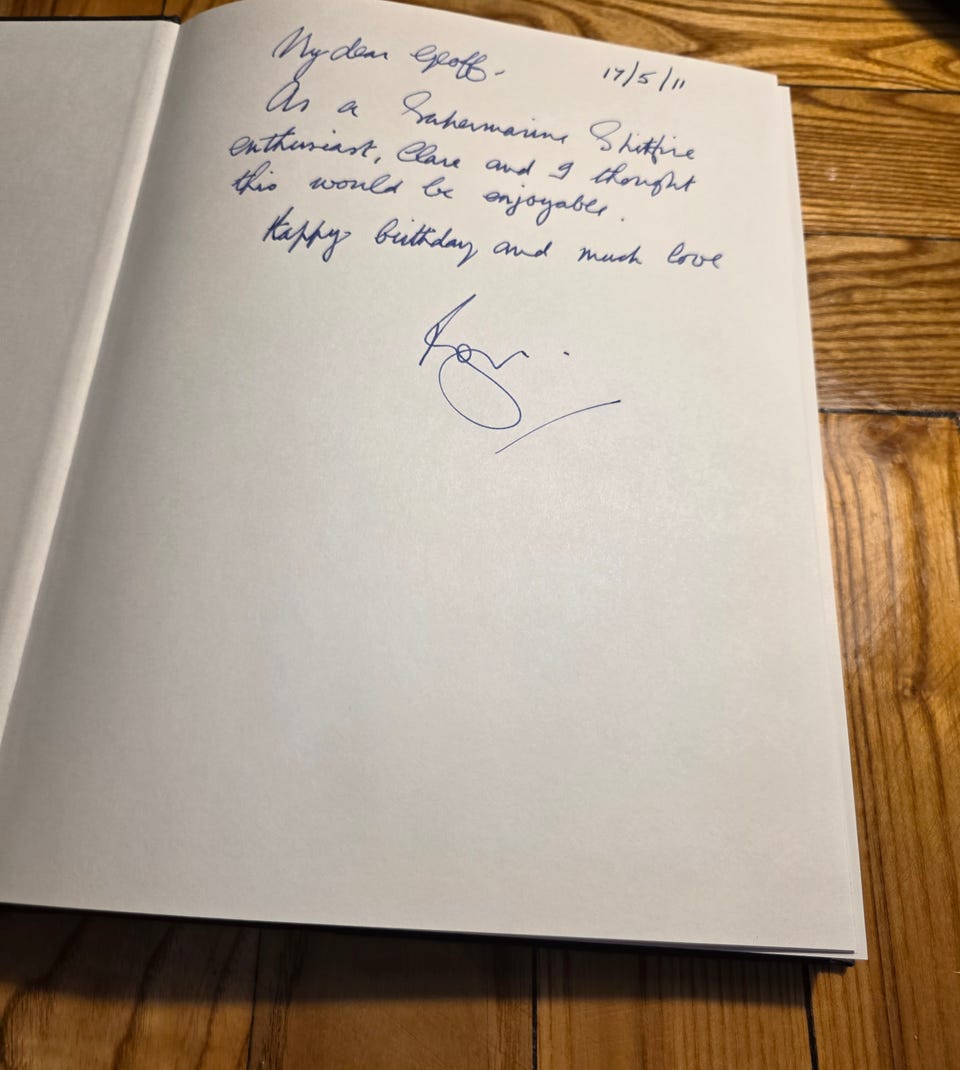 My dear Geoff.
17/5/11
As a Supermarine Spitfire
enthusiast, Clare and I thought
this would be enjoyable.
Happy birthday and much love